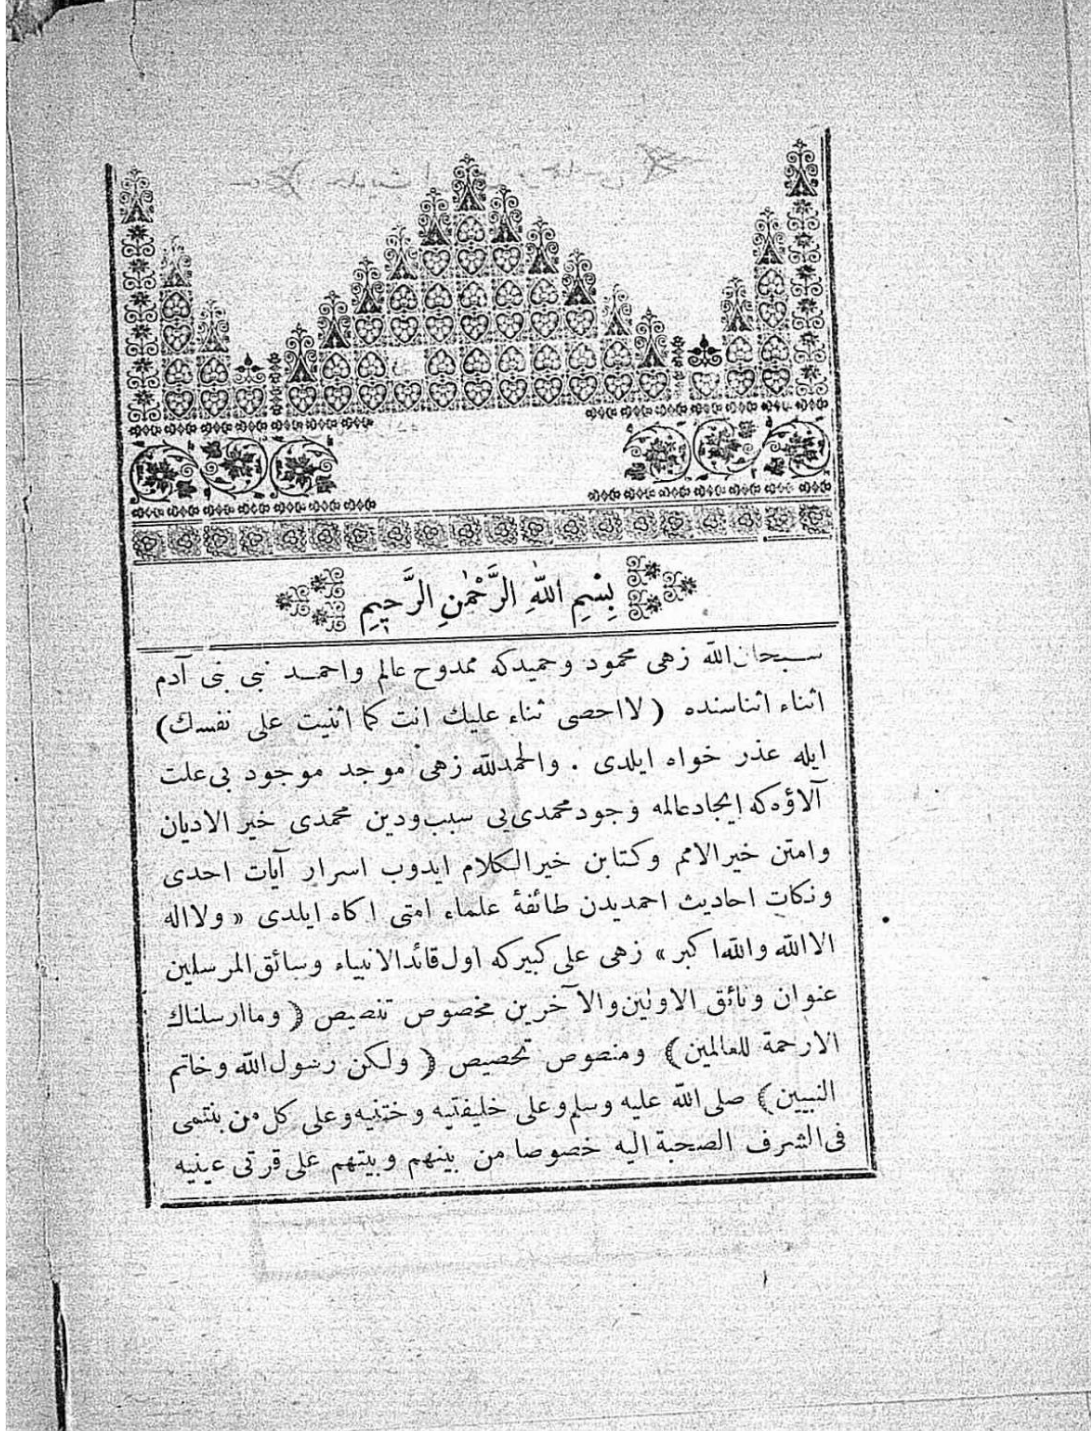 بِسْمِ اللّٰهِ الرَّحْمٰنِ الرَّحِيمِ
سبحان الله زهى محمود وحميدكه ممدوح عالم واحمد نبى بنى آدم
اثناء اثناسنده (لااحصى ثناء عليك انت كما اثنيت على نفسك)
ايله عذر خواه ايلدى . والحمدلله زهى موجد موجود بى علت
آلاؤه كه ايجادعالمه وجودمحمدى يى سبب ودين محمدى خير الاديان
وامتن خيرالامم وكتابن خيرالكلام ايدوب اسرار آيات احدى
ونكات احاديث احمديدن طائفهٔ علماء امتى اكاه ايلدى « ولااله
الاالله والله اكبر » زهى على كبيركه اول قائدالانبياء وسائق المرسلين
عنوان وفائق الاولين والآخرين مخصوص تنصيص ( وماارسلناك
الارحمة للعالمين) ومنصوص تخصيص ( ولكن رسول الله وخاتم
النبيين) صلى الله عليه وسلم وعلى خليفتيه وختنيه وعلى كل من ينتمى
فى الشرف الصحبة اليه خصوصا من بينهم وبيتهم على قرتى عينيه